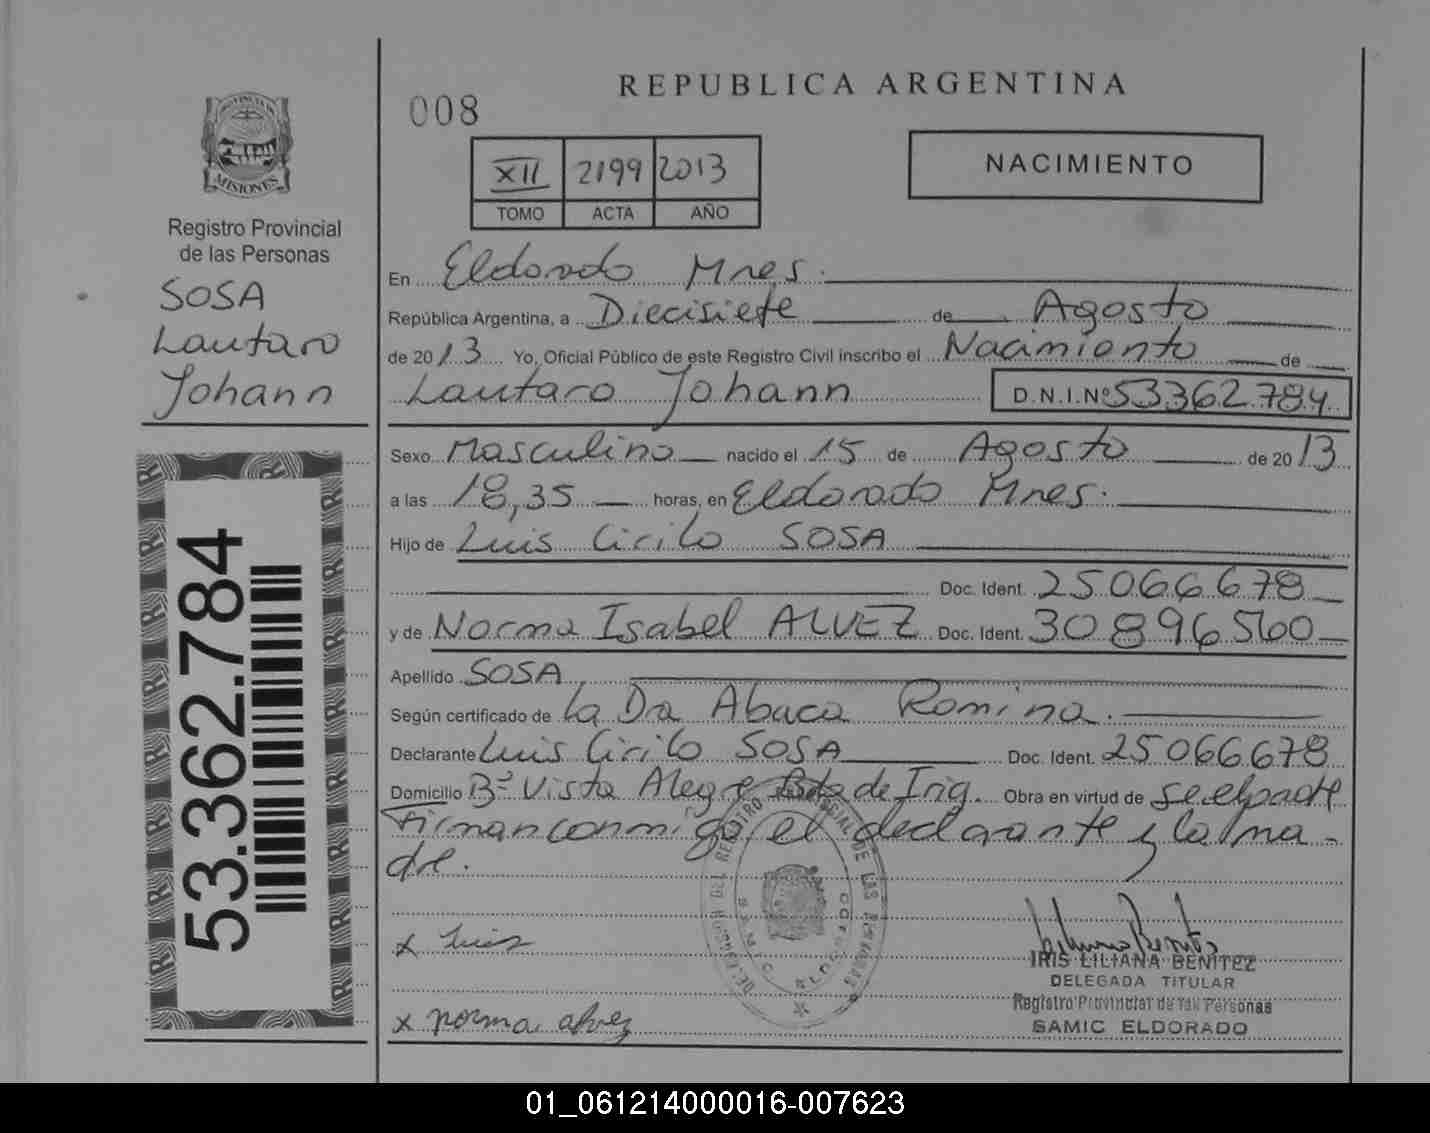 REPUBLICA ARGENTINA
008
XII 2199 2013
TOMO ACTA AÑO
NACIMIENTO
PROVINCIA DE
MISIONES
Registro Provincial
de las Personas
SOSA
Lautaro
Johann
53.362.784
En Eldorado Mnes.
República Argentina, a Diecisiete de Agosto
de 2013 Yo, Oficial Público de este Registro Civil inscribo el Nacimiento de
Lautaro Johann D.N.I.Nº 53362784
Sexo Masculino nacido el 15 de Agosto de 2013
a las 18,35 horas, en Eldorado Mnes.
Hijo de Luis Cirilo SOSA
Doc. Ident. 25066678
y de Norma Isabel ALVEZ Doc. Ident. 30896560
Apellido SOSA
Según certificado de la Dra Abaca Romina.
Declarante Luis Cirilo SOSA Doc. Ident. 25066678
Domicilio Bº Vista Alegre de Irig. Obra en virtud de se el padre
Firman conmigo el declarante y la ma-
dre.
x Luis
x norma alvez
IRIS LILIANA BENITEZ
DELEGADA TITULAR
Registro Provincial de las Personas
SAMIC ELDORADO
01_061214000016-007623